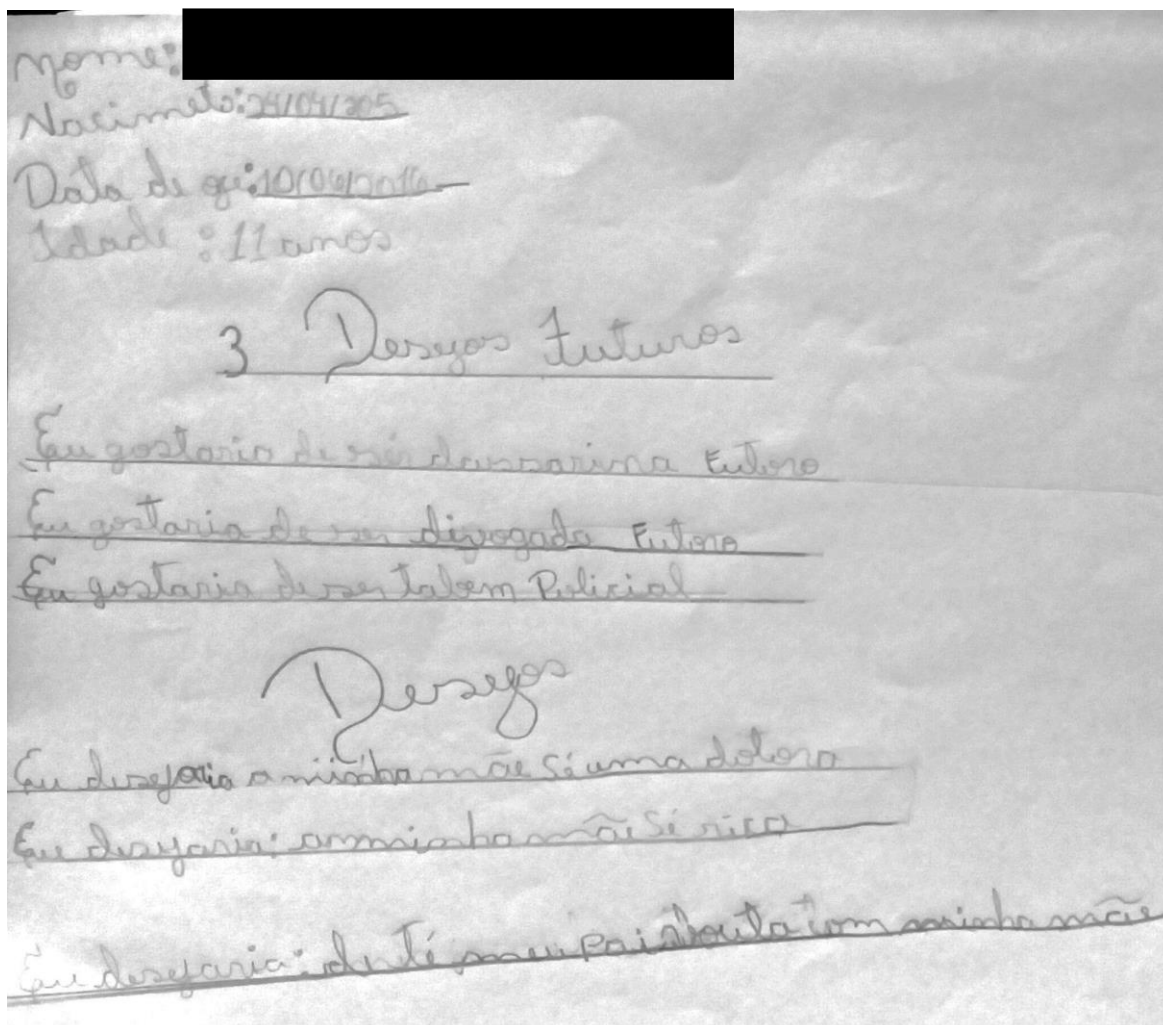 Nome:
Nascimeto: 24/04/205
Data de oji: 10/06/2016
Idade : 11 anos
3 Desejos Futuros
Eu gostaria de ser dansarina Futoro
Eu gostaria de ser divogada Futoro
Eu gostaria de ser tabem Policial
Desejos
Eu desejaria a minha mãe sé uma dotora
Eu desejaria: a minha mãi sé rica
Eu desejaria: de té meu pai com minha mãe